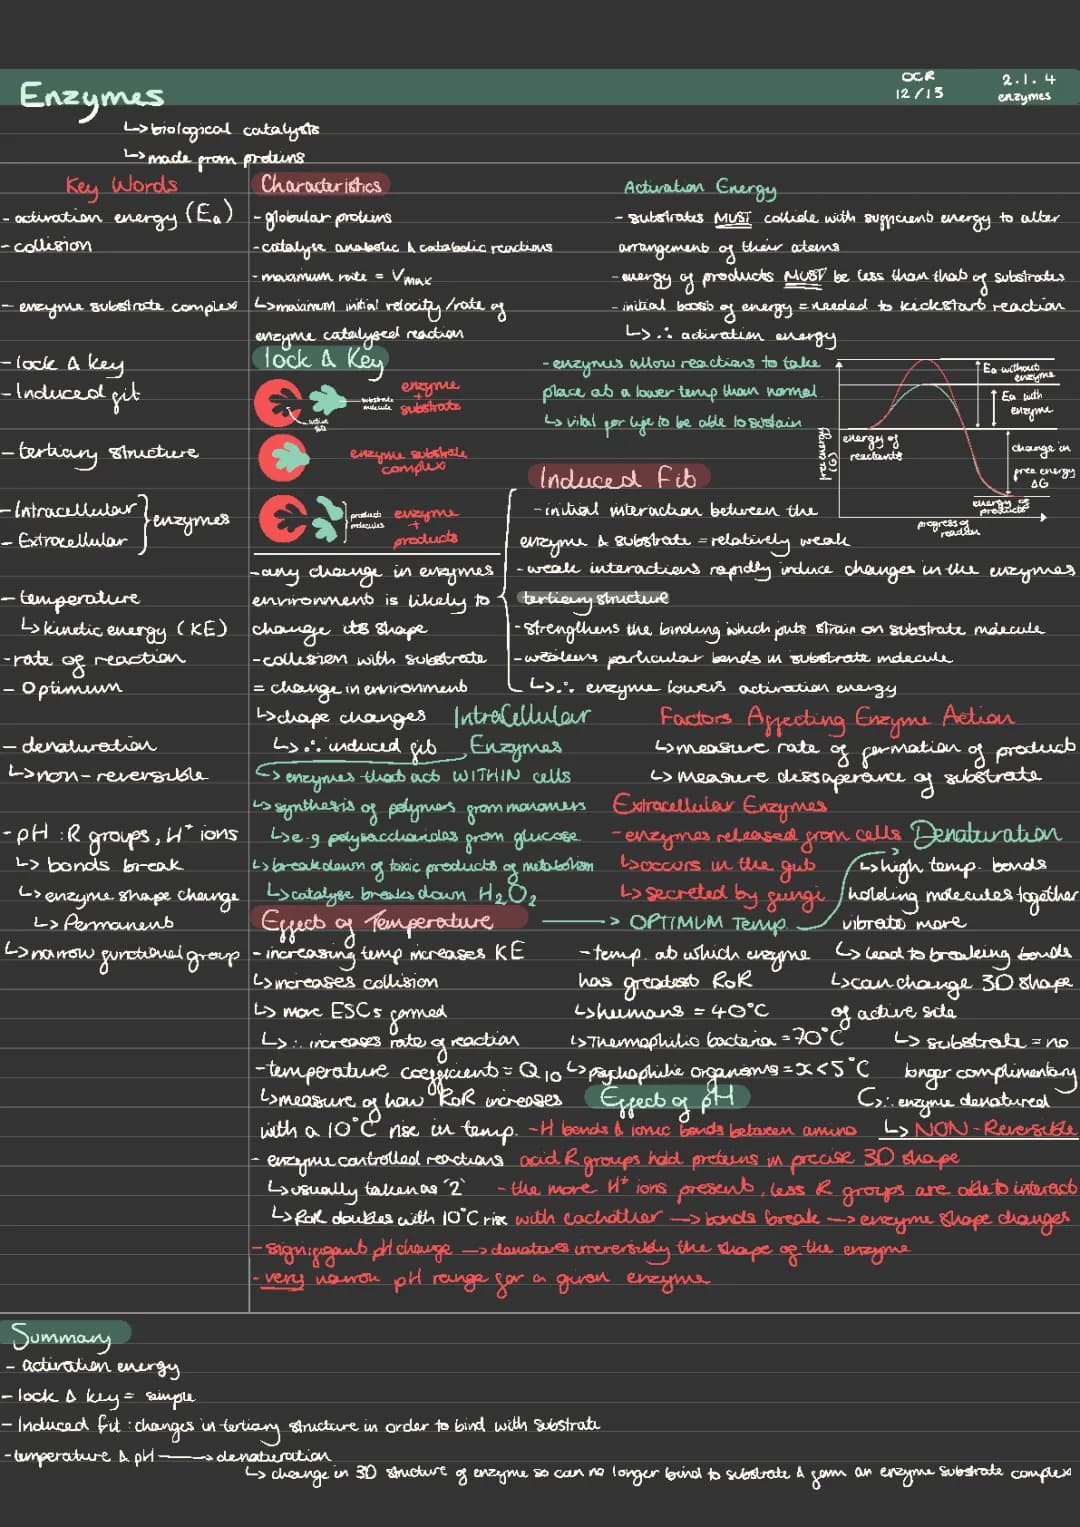 Enzymes
OCR
12/13
2.1.4
enzymes
↳biological catalysts
↳made from proteins
Key Words
- activation energy (Ea)
- collision
- enzyme substrate complex
- lock & key
- Induced fit
- tertiary structure
- Intracellular
- Extracellular
} enzymes
- temperature
↳kinetic energy (KE)
- rate of reaction
- Optimum
- denaturation
↳non-reversible
- pH : R groups, H⁺ ions
↳ bonds break
↳enzyme shape change
↳ Permanent
↳narrow functional group
Characteristics
- globular proteins
- catalyse anabolic & catabolic reactions
- maximum rate = Vmax
↳maximum initial velocity/rate of
enzyme catalysed reaction
Activation Energy
- substrates MUST collide with sufficient energy to alter
arrangement of their atoms
- energy of products MUST be less than that of substrates
- initial boost of energy = needed to kickstart reaction
↳ ∴ activation energy
- enzymes allow reactions to take
place at a lower temp than normal
↳ vital for life to be able to sustain
lock & Key
active
site
substrate
molecule
enzyme
+
substrate
enzyme substrate
complex
product
molecules
enzyme
+
products
Ea without
enzyme
Ea with
enzyme
energy of
reactants
change in
free energy
ΔG
energy of
products
free energy
(G)
progress of
reaction
- any change in enzymes
environment is likely to
change its shape
- collision with substrate
= change in environment
↳shape changes
↳ ∴ induced fit
Induced Fit
- initial interaction between the
enzyme & substrate = relatively weak
- weak interactions rapidly induce changes in the enzymes
tertiary structure
- strengthens the binding which puts strain on substrate molecule
- weakens particular bonds in substrate molecule
↳ ∴ enzyme lowers activation energy
IntraCellular
Enzymes
↳ enzymes that act WITHIN cells
↳ synthesis of polymers from monomers
↳e.g polysaccharides from glucose
↳breakdown of toxic products of metabolism
↳catalyse breaks down H₂O₂
Factors Affecting Enzyme Action
↳measure rate of formation of product
↳ measure dissaperance of substrate
Extracellular Enzymes
- enzymes released from cells
↳occurs in the gut
↳ secreted by fungi
Denaturation
↳high temp. bonds
holding molecules together
vibrate more
↳ lead to breaking bonds
↳can change 3D shape
of active site
↳ substrate = no
longer complimentary
↳∴ enzyme denatured
↳ NON-Reversible
Effect of Temperature
- increasing temp increases KE
↳increases collision
↳ more ESCs formed
↳ ∴ increases rate of reaction
- temperature coefficient = Q10
↳measure of how RoR increases
with a 10°C rise in temp.
- enzyme controlled reactions
↳usually taken as '2'
↳RoR doubles with 10°C rise
→ OPTIMUM Temp.
- temp. at which enzyme
has greatest RoR
↳humans = 40°C
↳Thermophilic bacteria = 70°C
↳psychophilic organisms = x<5°C
Effect of pH
- H bonds & ionic bonds between amino
acid R groups hold proteins in precise 3D shape
- the more H⁺ ions present, less R groups are able to interact
with eachother → bonds break → enzyme shape changes
- significant pH change → denatures irreversibly the shape of the enzyme
- very narrow pH range for a given enzyme
Summary
- activation energy
- lock & key = simple
- Induced fit : changes in tertiary structure in order to bind with substrate
- temperature & pH → denaturation
↳ change in 3D structure of enzyme so can no longer bind to substrate & form an enzyme substrate complex